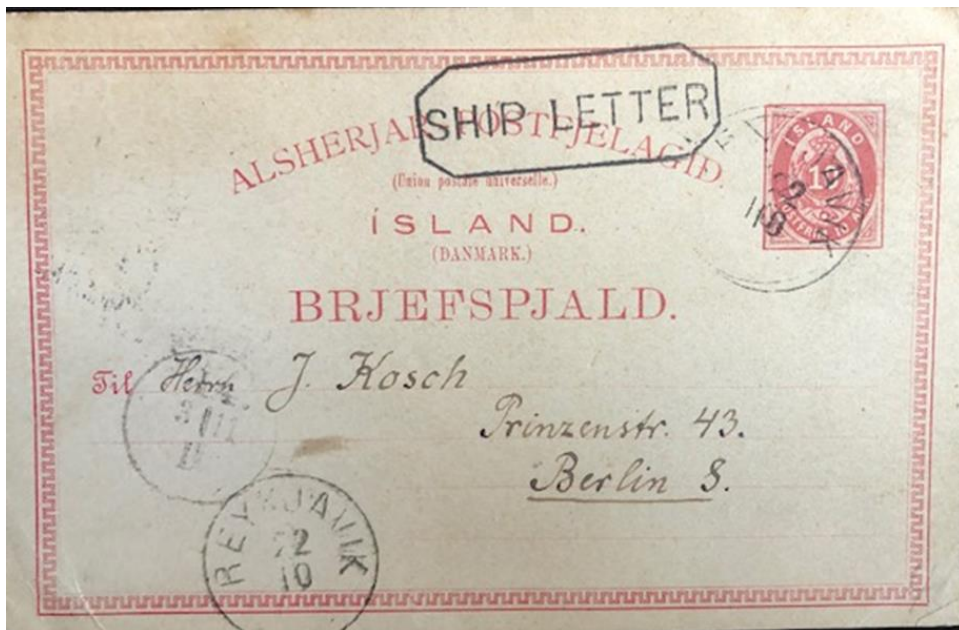 SHIP LETTER
ALSHERJAR POSTFJELAGIÐ.
(Union postale universelle.)
ÍSLAND.
(DANMARK.)
BRJEFSPJALD.
ÍSLAND
Til Herrn J. Kosch
Prinzenstr. 43.
Berlin S.
REYKJAVIK
10